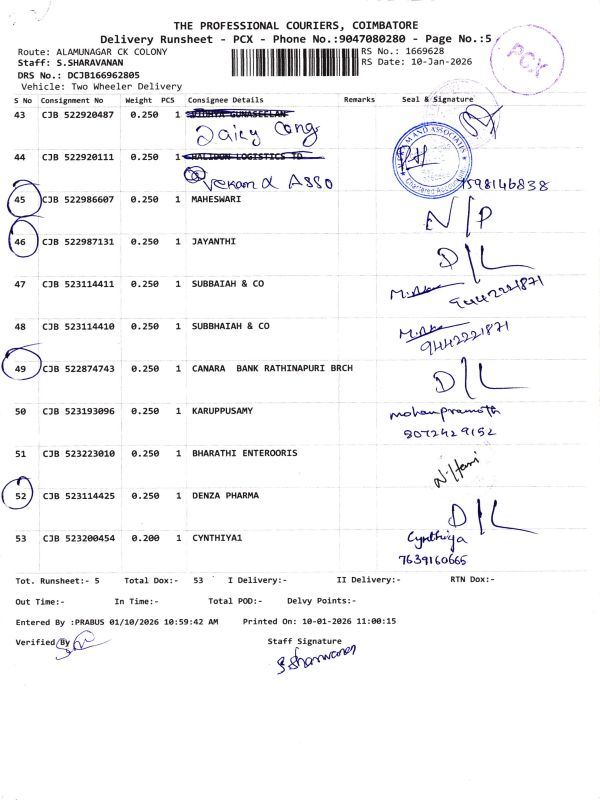 THE PROFESSIONAL COURIERS, COIMBATORE
Delivery Runsheet - PCX - Phone No.:9047080280 - Page No.:5
Route: ALAMUNAGAR CK COLONY RS No.: 1669628
Staff: S.SHARAVANAN RS Date: 10-Jan-2026
DRS No.: DCJB166962805
Vehicle: Two Wheeler Delivery
PCX
S No Consignment No Weight PCS Consignee Details Remarks Seal & Signature
43 CJB 522920487 0.250 1 VIDHYA GUNASEELAN
Dairy
44 CJB 522920111 0.250 1 HALIDON LOGISTICS TD
ASSO 7598146838
45 CJB 522986607 0.250 1 MAHESWARI N/P
46 CJB 522987131 0.250 1 JAYANTHI D/L
47 CJB 523114411 0.250 1 SUBBAIAH & CO
9442221871
48 CJB 523114410 0.250 1 SUBBHAIAH & CO
9442221871
49 CJB 522874743 0.250 1 CANARA BANK RATHINAPURI BRCH D/L
50 CJB 523193096 0.250 1 KARUPPUSAMY mohanpramoth
8072429152
51 CJB 523223010 0.250 1 BHARATHI ENTEROORIS N.Hari
52 CJB 523114425 0.250 1 DENZA PHARMA D/L
53 CJB 523200454 0.200 1 CYNTHIYA1 Cynthiya
7639160665
Tot. Runsheet:- 5 Total Dox:- 53 I Delivery:- II Delivery:- RTN Dox:-
Out Time:- In Time:- Total POD:- Delvy Points:-
Entered By :PRABUS 01/10/2026 10:59:42 AM Printed On: 10-01-2026 11:00:15
Verified By Staff Signature
S Sharavanan